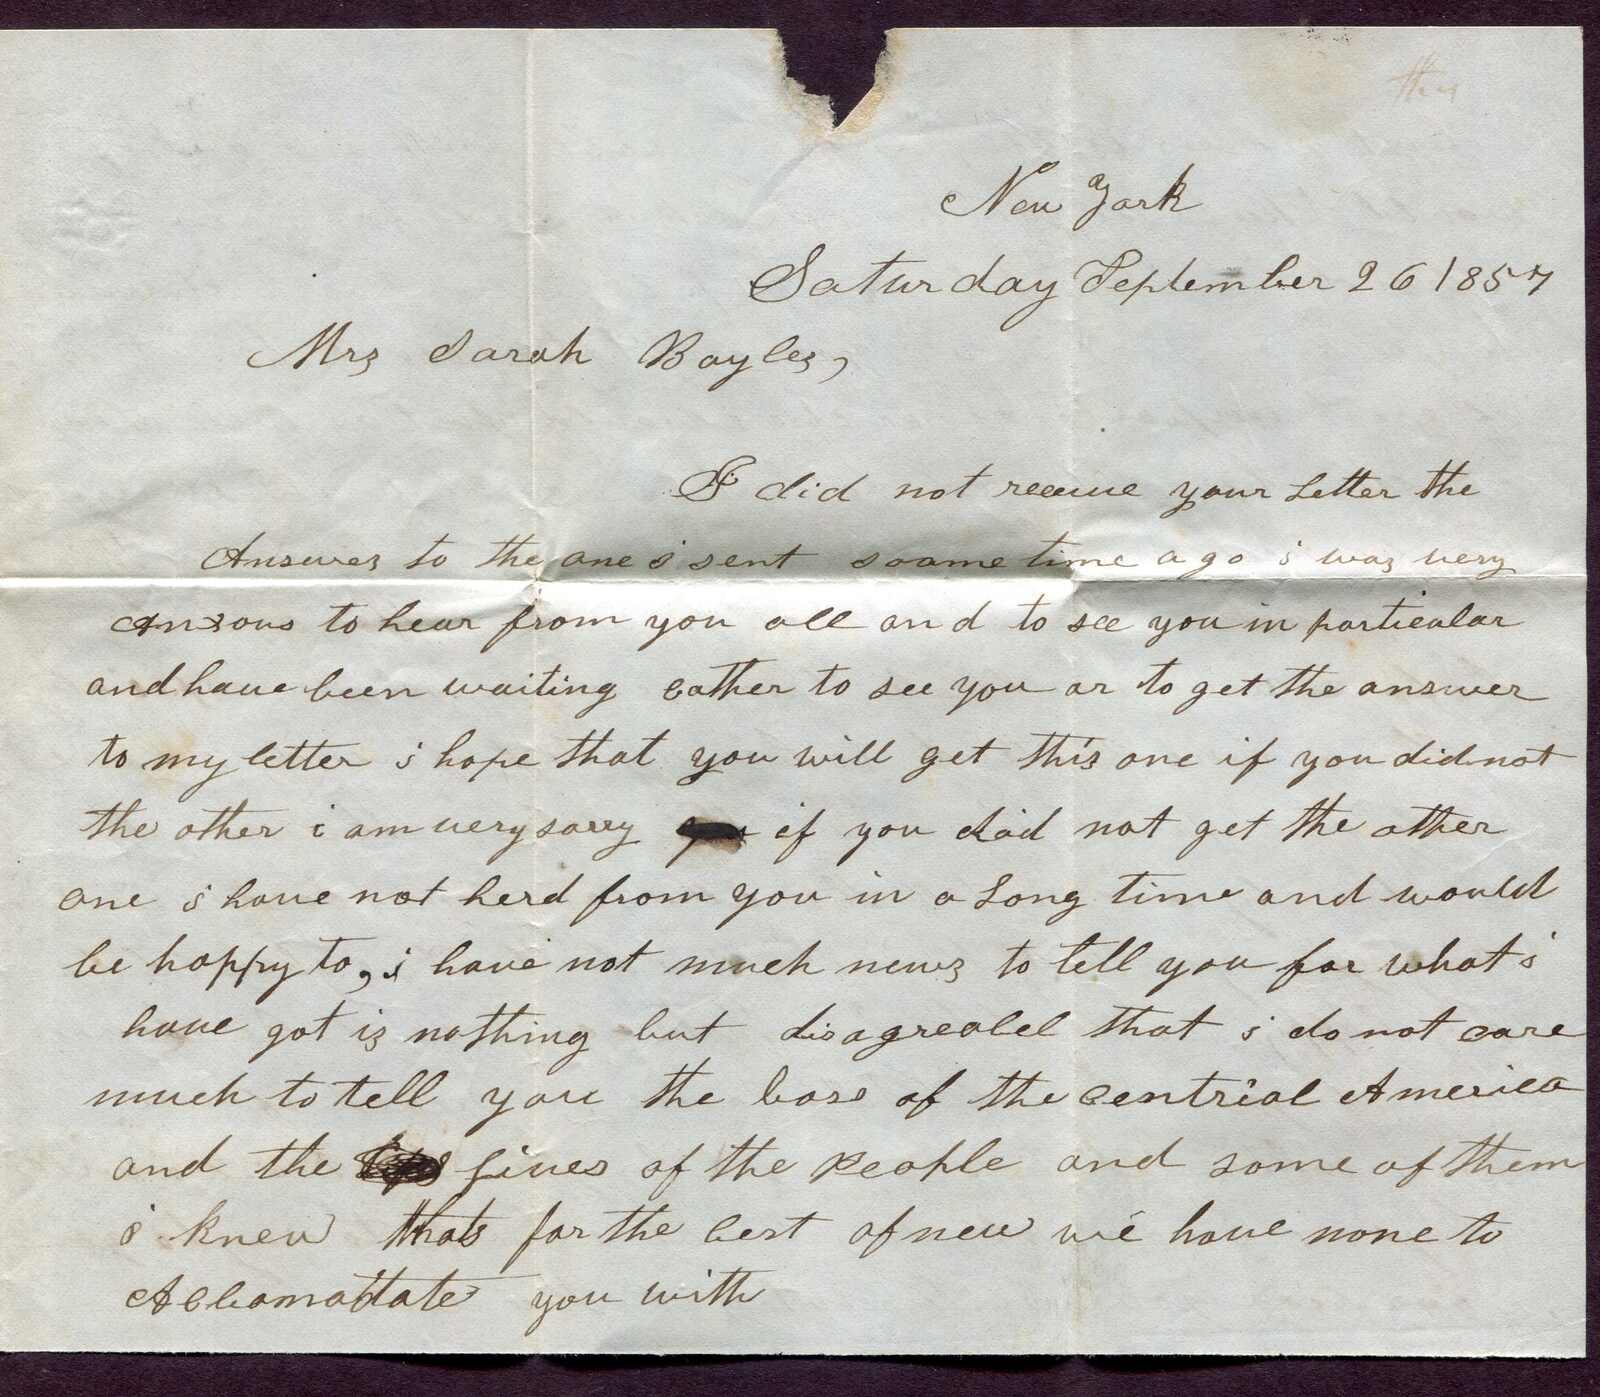 New York
Saturday September 26 1857
Mrs Sarah Bayles,
I did not receive your Letter the
Answer to the one i sent soome time ago i was very
Anxous to hear from you all and to see you in particular
and have been waiting eather to see you or to get the answer
to my letter i hope that you will get this one if you did not
the other i am very sorry if you did not get the other
one i have not herd from you in a Long time and would
be happy to, i have not much news to tell you for what i
have got is nothing but disagreabel that i do not care
much to tell you the loss of the central America
and the lives of the People and some of them
i knew thats for the best of new we have none to
Accomadate you with